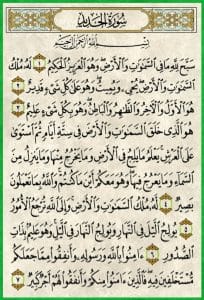 سُورَةُ الْحَدِيدِ
بِسْمِ اللَّهِ الرَّحْمَٰنِ الرَّحِيمِ
سَبَّحَ لِلَّهِ مَا فِي السَّمَاوَاتِ وَالْأَرْضِ وَهُوَ الْعَزِيزُ الْحَكِيمُ ١ لَهُ مُلْكُ
السَّمَاوَاتِ وَالْأَرْضِ يُحْيِي وَيُمِيتُ وَهُوَ عَلَىٰ كُلِّ شَيْءٍ قَدِيرٌ ٢
هُوَ الْأَوَّلُ وَالْآخِرُ وَالظَّاهِرُ وَالْبَاطِنُ وَهُوَ بِكُلِّ شَيْءٍ عَلِيمٌ ٣
هُوَ الَّذِي خَلَقَ السَّمَاوَاتِ وَالْأَرْضَ فِي سِتَّةِ أَيَّامٍ ثُمَّ اسْتَوَىٰ
عَلَى الْعَرْشِ يَعْلَمُ مَا يَلِجُ فِي الْأَرْضِ وَمَا يَخْرُجُ مِنْهَا وَمَا يَنزِلُ مِنَ
السَّمَاءِ وَمَا يَعْرُجُ فِيهَا وَهُوَ مَعَكُمْ أَيْنَ مَا كُنتُمْ وَاللَّهُ بِمَا تَعْمَلُونَ
بَصِيرٌ ٤ لَهُ مُلْكُ السَّمَاوَاتِ وَالْأَرْضِ وَإِلَى اللَّهِ تُرْجَعُ الْأُمُورُ
٥ يُولِجُ اللَّيْلَ فِي النَّهَارِ وَيُولِجُ النَّهَارَ فِي اللَّيْلِ وَهُوَ عَلِيمٌ بِذَاتِ
الصُّدُورِ ٦ آمِنُوا بِاللَّهِ وَرَسُولِهِ وَأَنفِقُوا مِمَّا جَعَلَكُم
مُّسْتَخْلَفِينَ فِيهِ فَالَّذِينَ آمَنُوا مِنكُمْ وَأَنفَقُوا لَهُمْ أَجْرٌ كَبِيرٌ ٧